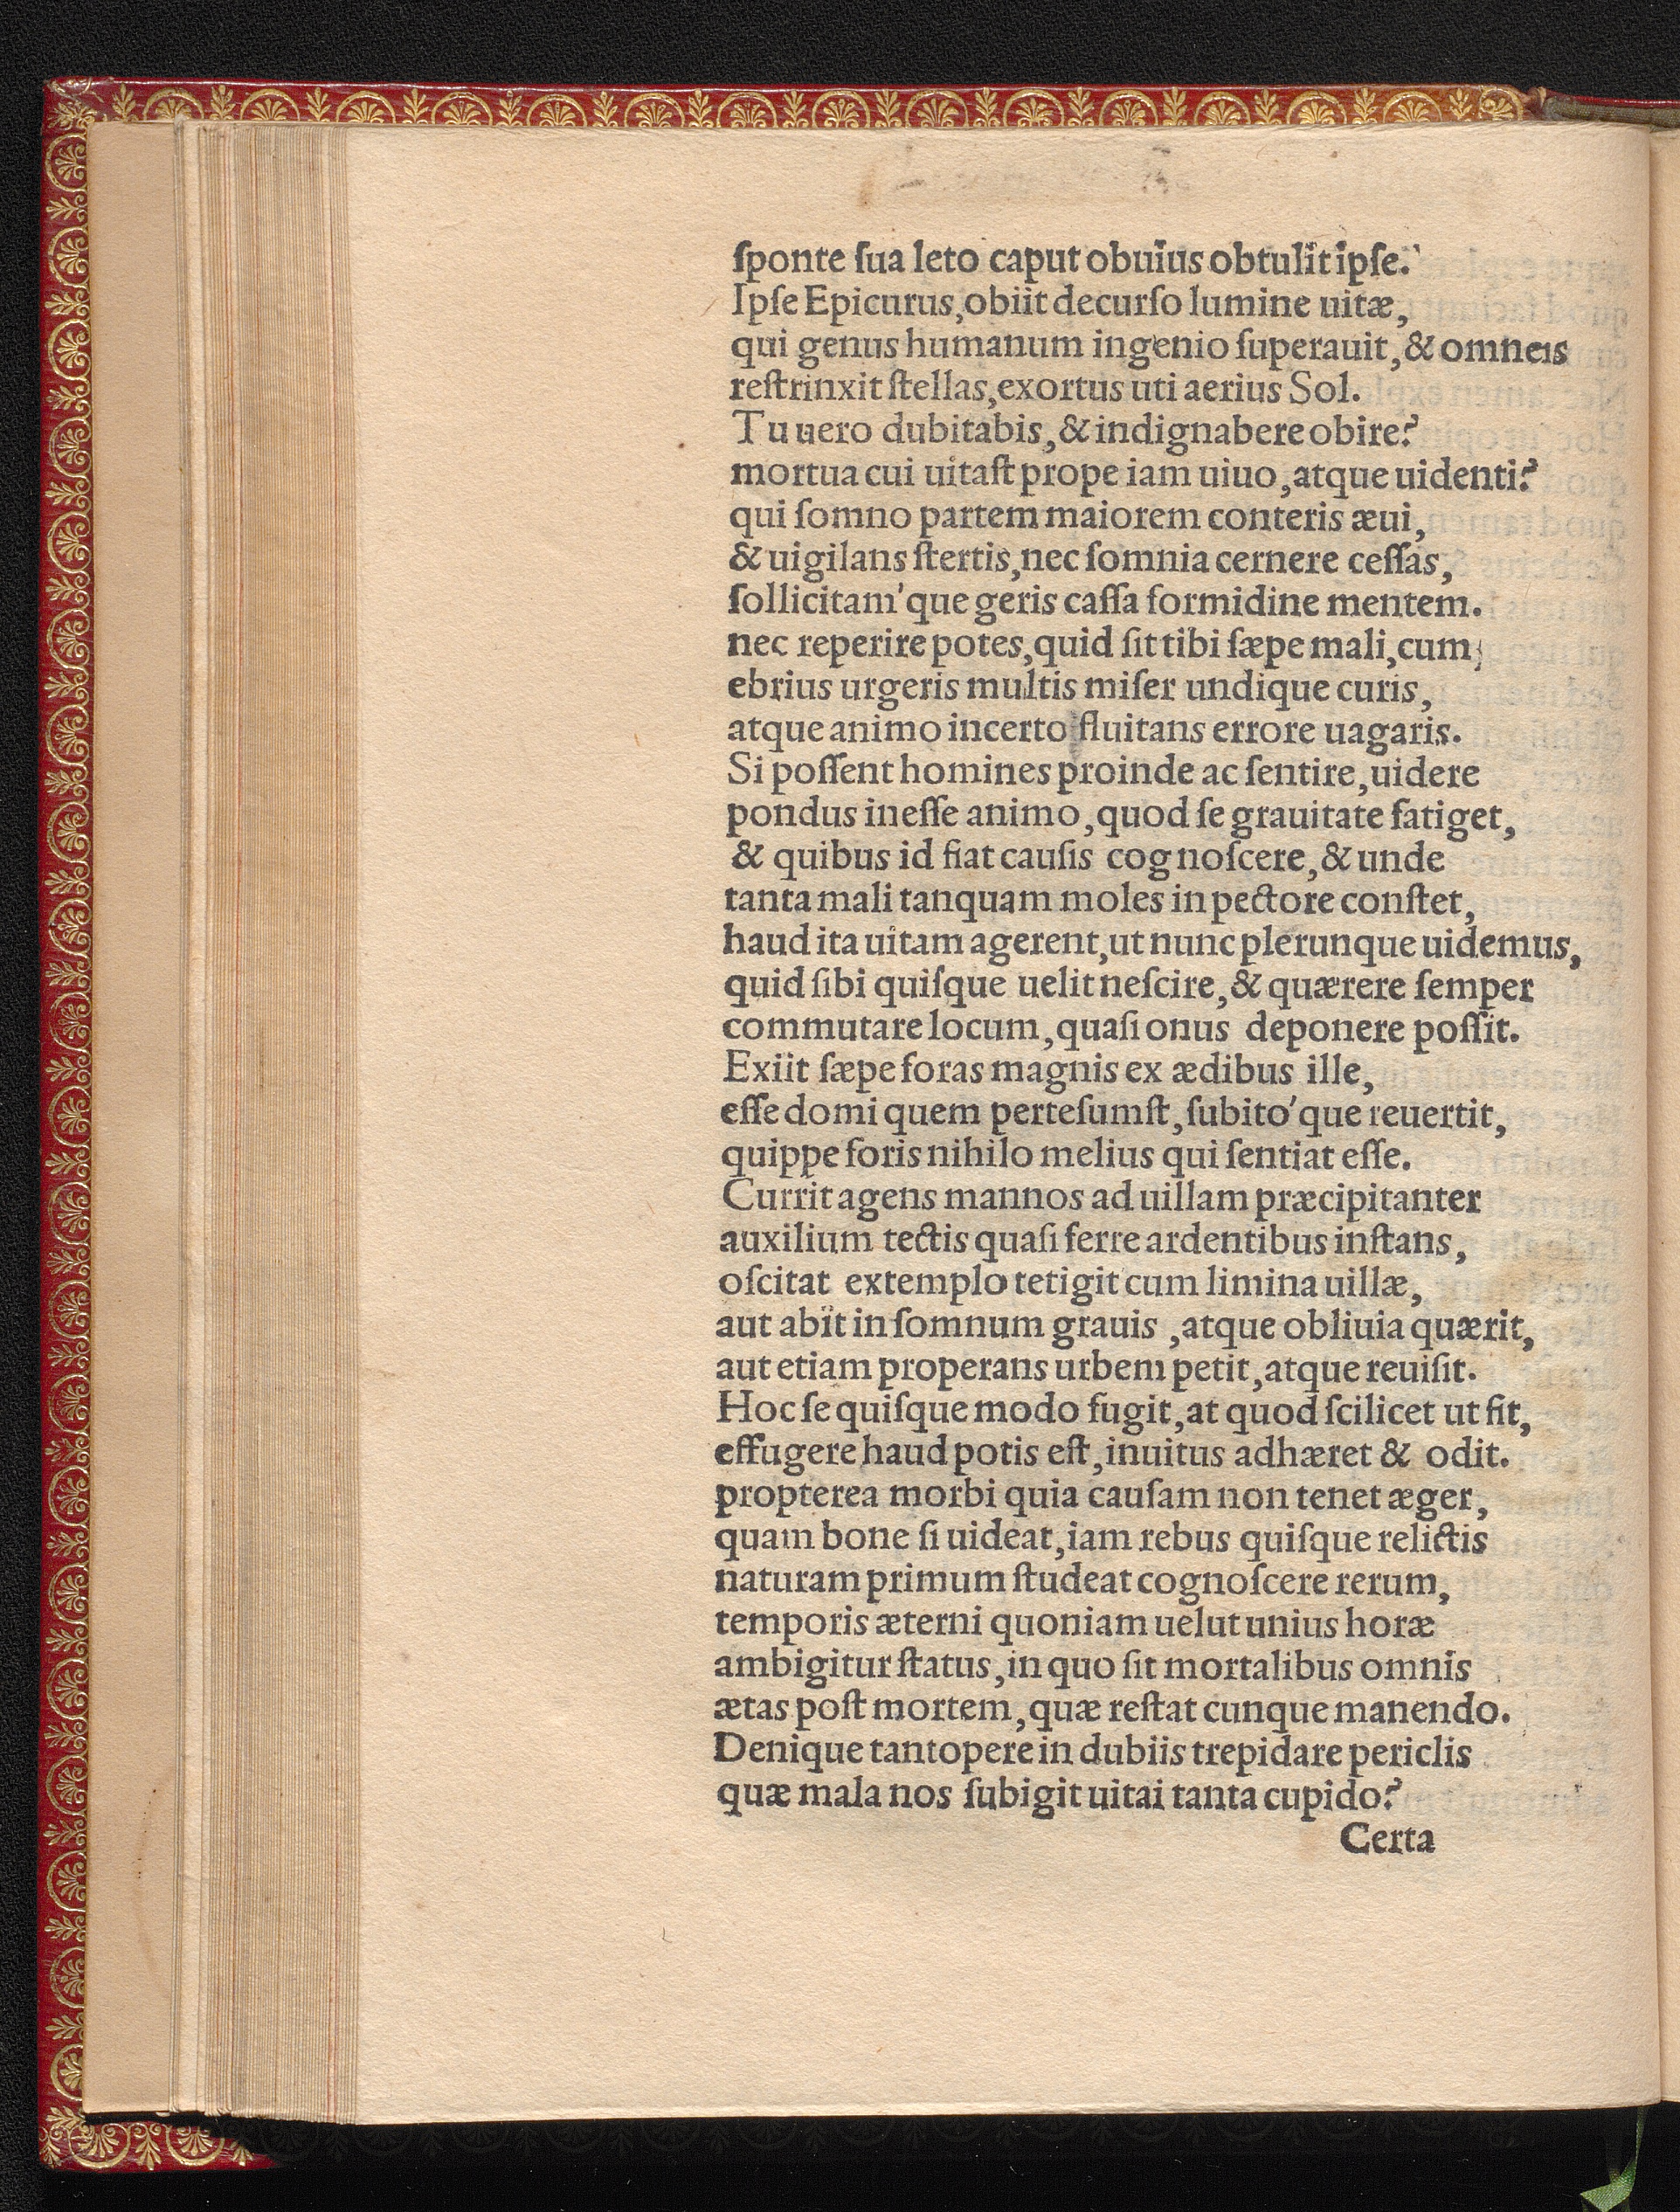 ſponte ſua leto caput obuius obtulit ipſe.
Ipſe Epicurus, obiit decurſo lumine uitæ,
qui genus humanum ingenio ſuperauit, & omneis
reſtrinxit ſtellas, exortus uti aerius Sol.
Tu uero dubitabis, & indignabere obire?
mortua cui uitaſt prope iam uiuo, atque uidenti?
qui ſomno partem maiorem conteris æui,
& uigilans ſtertis, nec ſomnia cernere ceſſas,
ſollicitam'que geris caſſa formidine mentem.
nec reperire potes, quid ſit tibi ſæpe mali, cum
ebrius urgeris multis miſer undique curis,
atque animo incerto fluitans errore uagaris.
Si poſſent homines proinde ac ſentire, uidere
pondus ineſſe animo, quod ſe grauitate fatiget,
& quibus id fiat cauſis cognoſcere, & unde
tanta mali tanquam moles in pectore conſtet,
haud ita uitam agerent, ut nunc plerunque uidemus,
quid ſibi quiſque uelit neſcire, & quærere ſemper
commutare locum, quaſi onus deponere poſſit.
Exiit ſæpe foras magnis ex ædibus ille,
eſſe domi quem perteſumſt, ſubito'que reuertit,
quippe foris nihilo melius qui ſentiat eſſe.
Currit agens mannos ad uillam præcipitanter
auxilium tectis quaſi ferre ardentibus inſtans,
oſcitat extemplo tetigit cum limina uillæ,
aut abit in ſomnum grauis, atque obliuia quærit,
aut etiam properans urbem petit, atque reuiſit.
Hoc ſe quiſque modo fugit, at quod ſcilicet ut fit,
effugere haud potis eſt, inuitus adhæret & odit.
propterea morbi quia cauſam non tenet æger,
quam bone ſi uideat, iam rebus quiſque relictis
naturam primum ſtudeat cognoſcere rerum,
temporis æterni quoniam uelut unius horæ
ambigitur ſtatus, in quo ſit mortalibus omnis
ætas poſt mortem, quæ reſtat cunque manendo.
Denique tantopere in dubiis trepidare periclis
quæ mala nos ſubigit uitai tanta cupido?
Certa